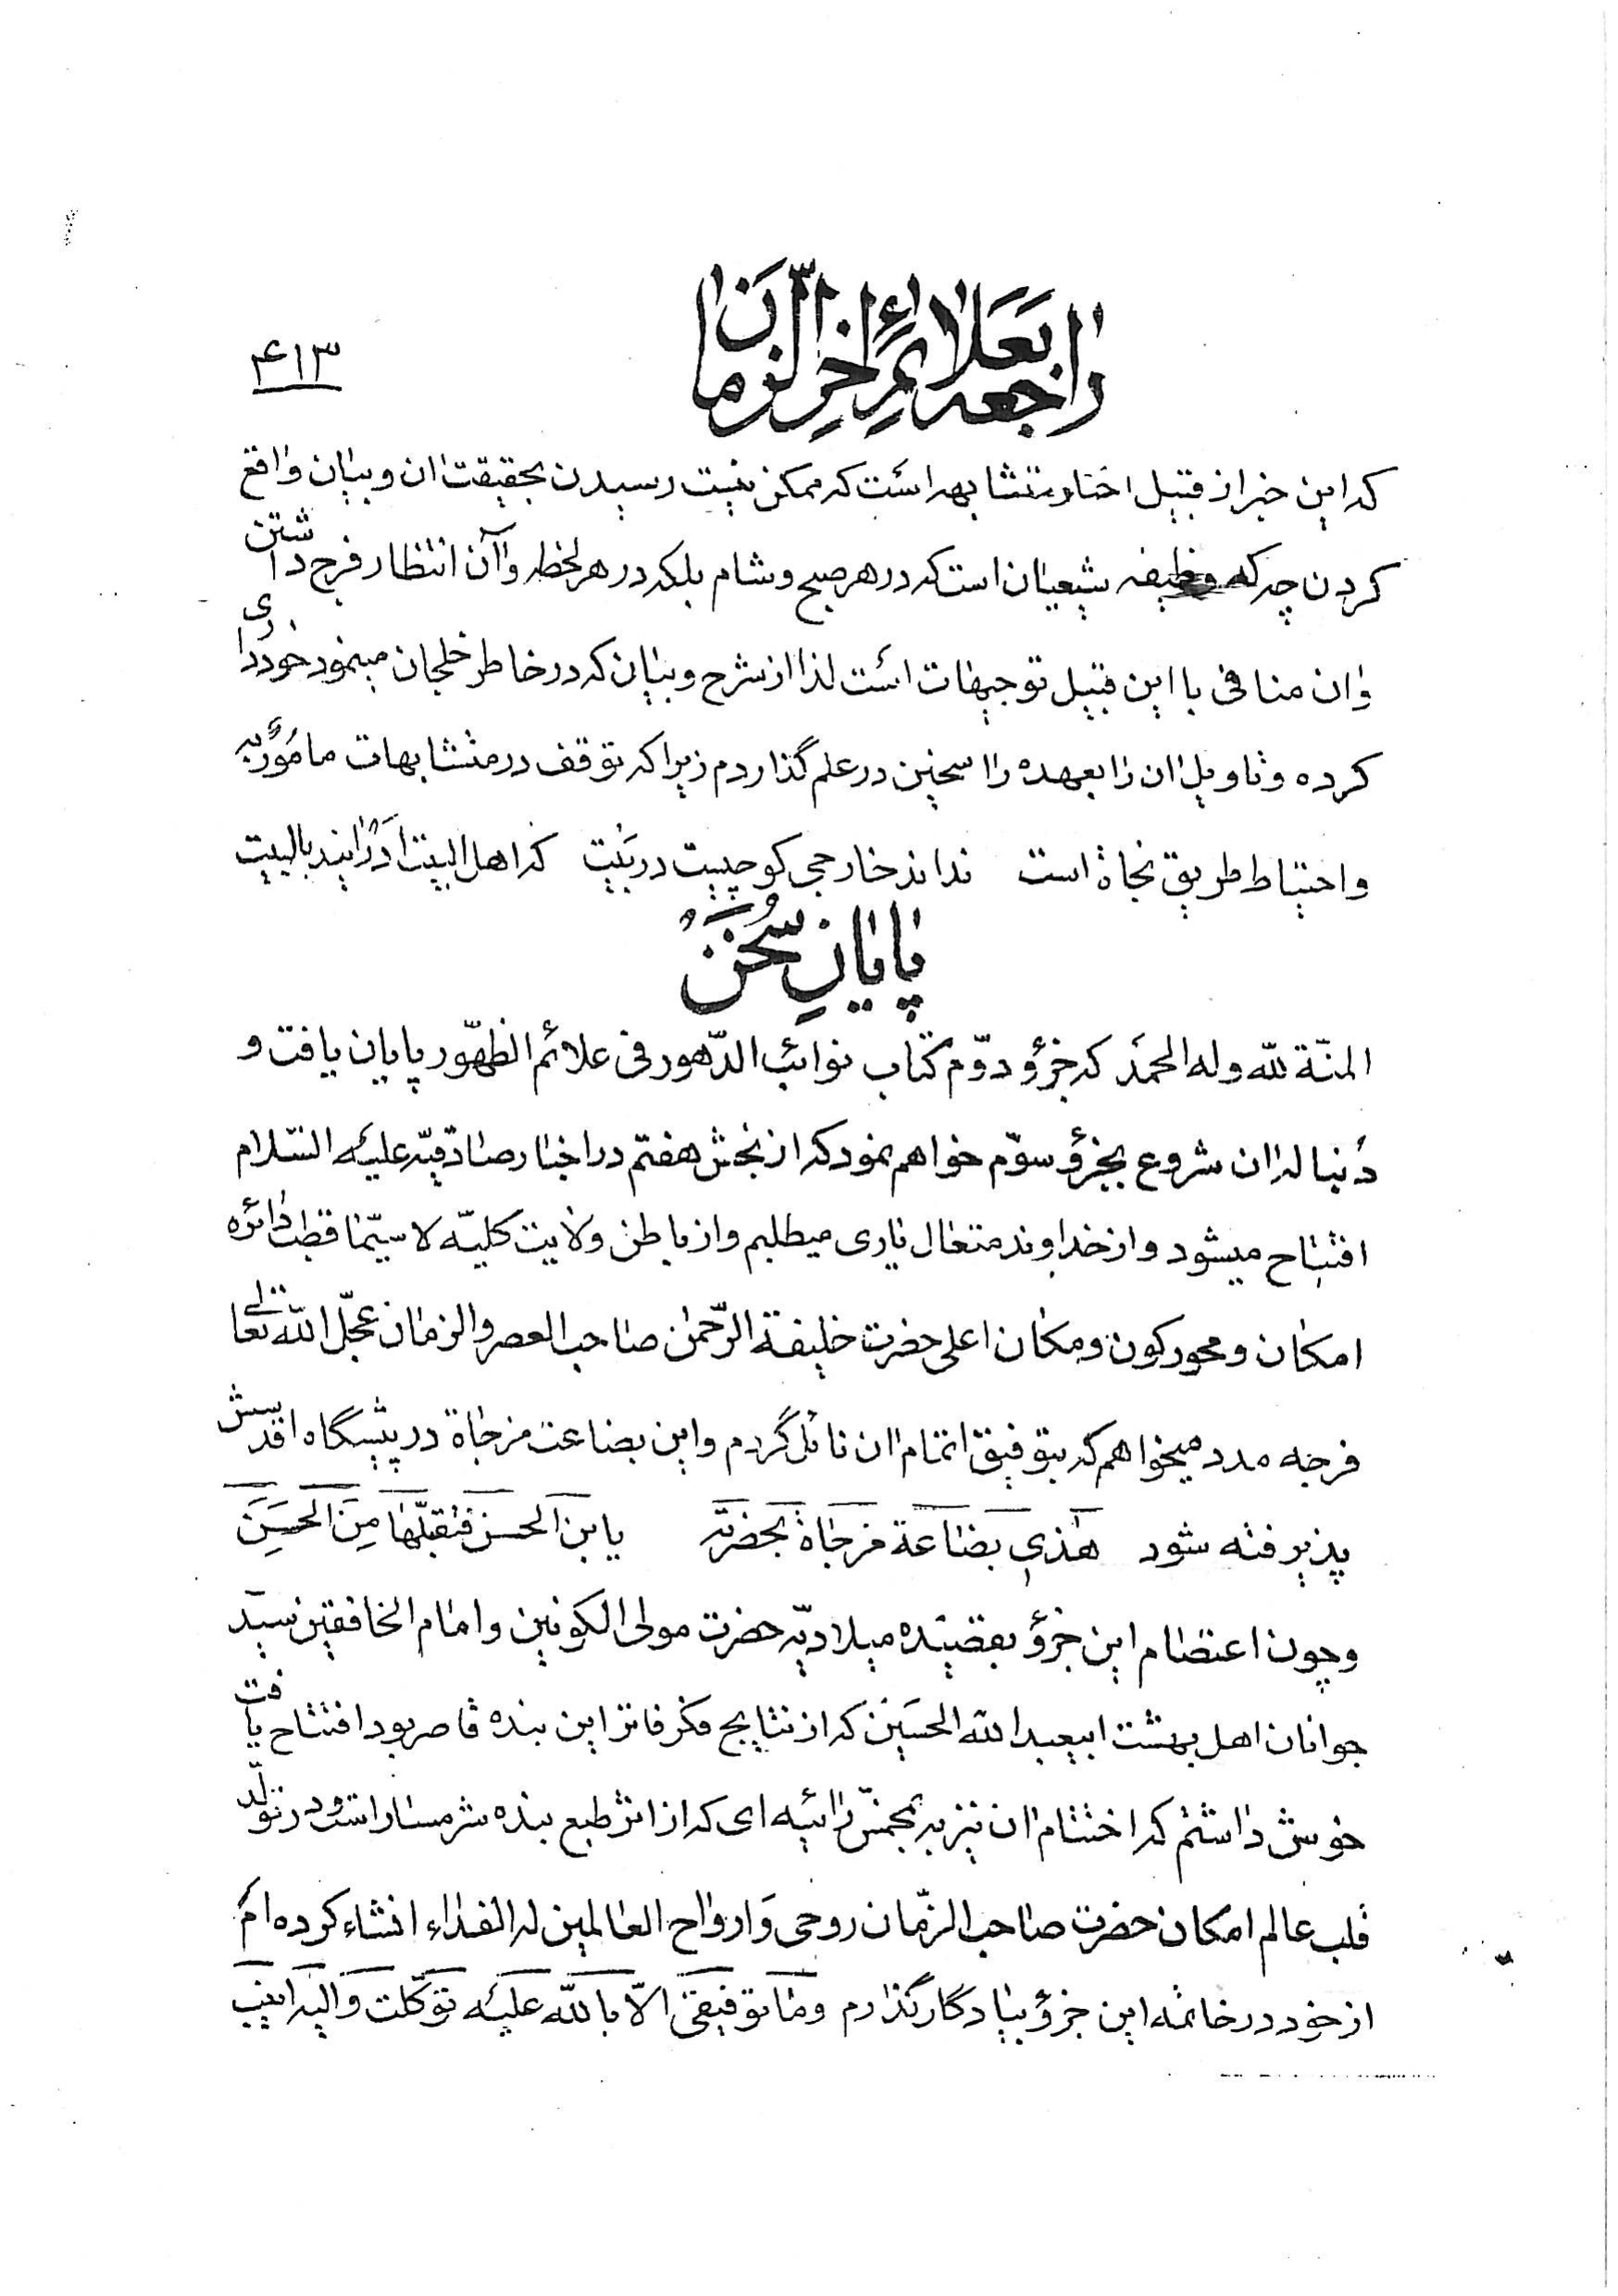 راجع بعلائم اخر الزمان
۴۱۳
که این خبر از قبیل اخبار متشابهه است که ممکن نیست رسیدن بحقیقت ان و بیان واقع
کردن چه که وظیفه شیعیان است که در هر صبح و شام بلکه در هر لحظه و آن انتظار فرج داشتن
و ان منافی با این قبیل توجیهات است لذا از شرح و بیان که در خاطر خلجان مینمود خودداری
کرده و تاویل ان را بعهده راسخین در علم گذاردم زیرا که توقف در متشابهات مامور به
و احتیاط طریق نجاة است نداند خارجی کو چیست در بیت که اهل البیت ادری بالبیت
پایان سخن
المنّة للّه وله الحمد که جزؤ دوّم کتاب نوائب الدّهور فی علائم الظّهور پایان یافت و
دنباله ان شروع بجزؤ سوّم خواهم نمود که از بخش هفتم در اخبار صادقیّه علیه السّلام
افتتاح میشود و از خداوند متعال یاری میطلبم و از باطن ولایت کلیّه لا سیّما قطب دائره
امکان و محور کون و مکان اعلی حضرت خلیفة الرّحمن صاحب العصر و الزمان عجّل اللّه تعالی
فرجه مدد میخواهم که بتوفیق اتمام ان نائل گردم و این بضاعت مزجاة در پیشگاه اقدسش
پذیرفته شود هذی بضاعة مزجاة بحضرته یابن الحسن فتقبلّها من الحسن
و چون اعتصام این جزؤ بقصیده میلادیّه حضرت مولی الکونین و امام الخافقین سیّد
جوانان اهل بهشت ابیعبد اللّه الحسین که از نتایج فکر فاتر این بنده قاصر بود افتتاح یافت
خوش داشتم که اختتام ان نیز به مخمّس رائیه ای که از اثر طبع بنده شرمسار است در تولّد
قلب عالم امکان حضرت صاحب الزّمان روحی و ارواح العالمین له الفداء انشاء کرده ام
از خود در خاتمه این جزؤ بیادگار گذارم وما توفیقی الّا باللّه علیه توکّلت والیه انیب